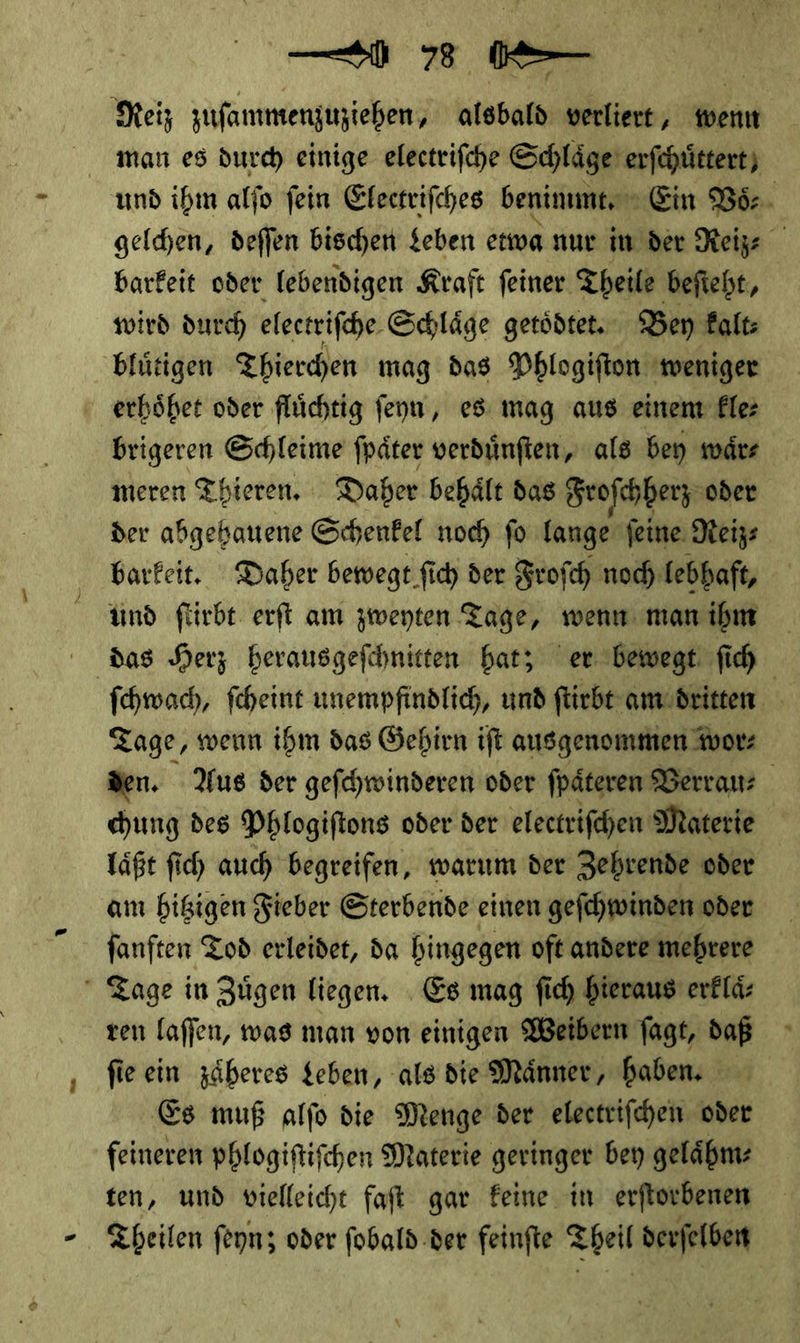 78
Reiz zusammenzuziehen, alsbald verliert, wenn
man es durch einige electrische Schläge erschüttert,
und ihm also sein Electrisches benimmt. Ein Vö-
gelchen, dessen bischen Leben etwa nur in der Reiz-
barkeit oder lebendigen Kraft seiner Theile besteht,
wird durch electrische Schläge getödtet. Bey kalt-
blütigen Thierchen mag das Phlogiston weniger
erhöhet oder flüchtig seyn, es mag aus einem kle-
brigeren Schleime später verdünsten, als bey wär-
meren Thieren. Daher behält das Froschherz oder
der abgehauene Schenkel noch so lange seine Reiz-
barkeit. Daher bewegt sich der Frosch noch lebhaft,
und stirbt erst am zweyten Tage, wenn man ihm
das Herz herausgeschnitten hat; er bewegt sich
schwach, scheint unempfindlich, und stirbt am dritten
Tage, wenn ihm das Gehirn ist ausgenommen wor-
den. Aus der geschwinderen oder späteren Verrau-
chung des Phlogistons oder der electrischen Materie
läßt sich auch begreifen, warum der Zehrende oder
am hitzigen Fieber Sterbende einen geschwinden oder
sanften Tod erleidet, da hingegen oft andere mehrere
Tage in Zügen liegen. Es mag sich hieraus erklä-
ren lassen, was man von einigen Weibern sagt, daß
sie ein zäheres Leben, als die Männer, haben.
Es muß also die Menge der electrischen oder
feineren phlogistischen Materie geringer bey gelähm-
ten, und vielleicht fast gar keine in erstorbenen
Theilen seyn; oder sobald der feinste Theil derselben